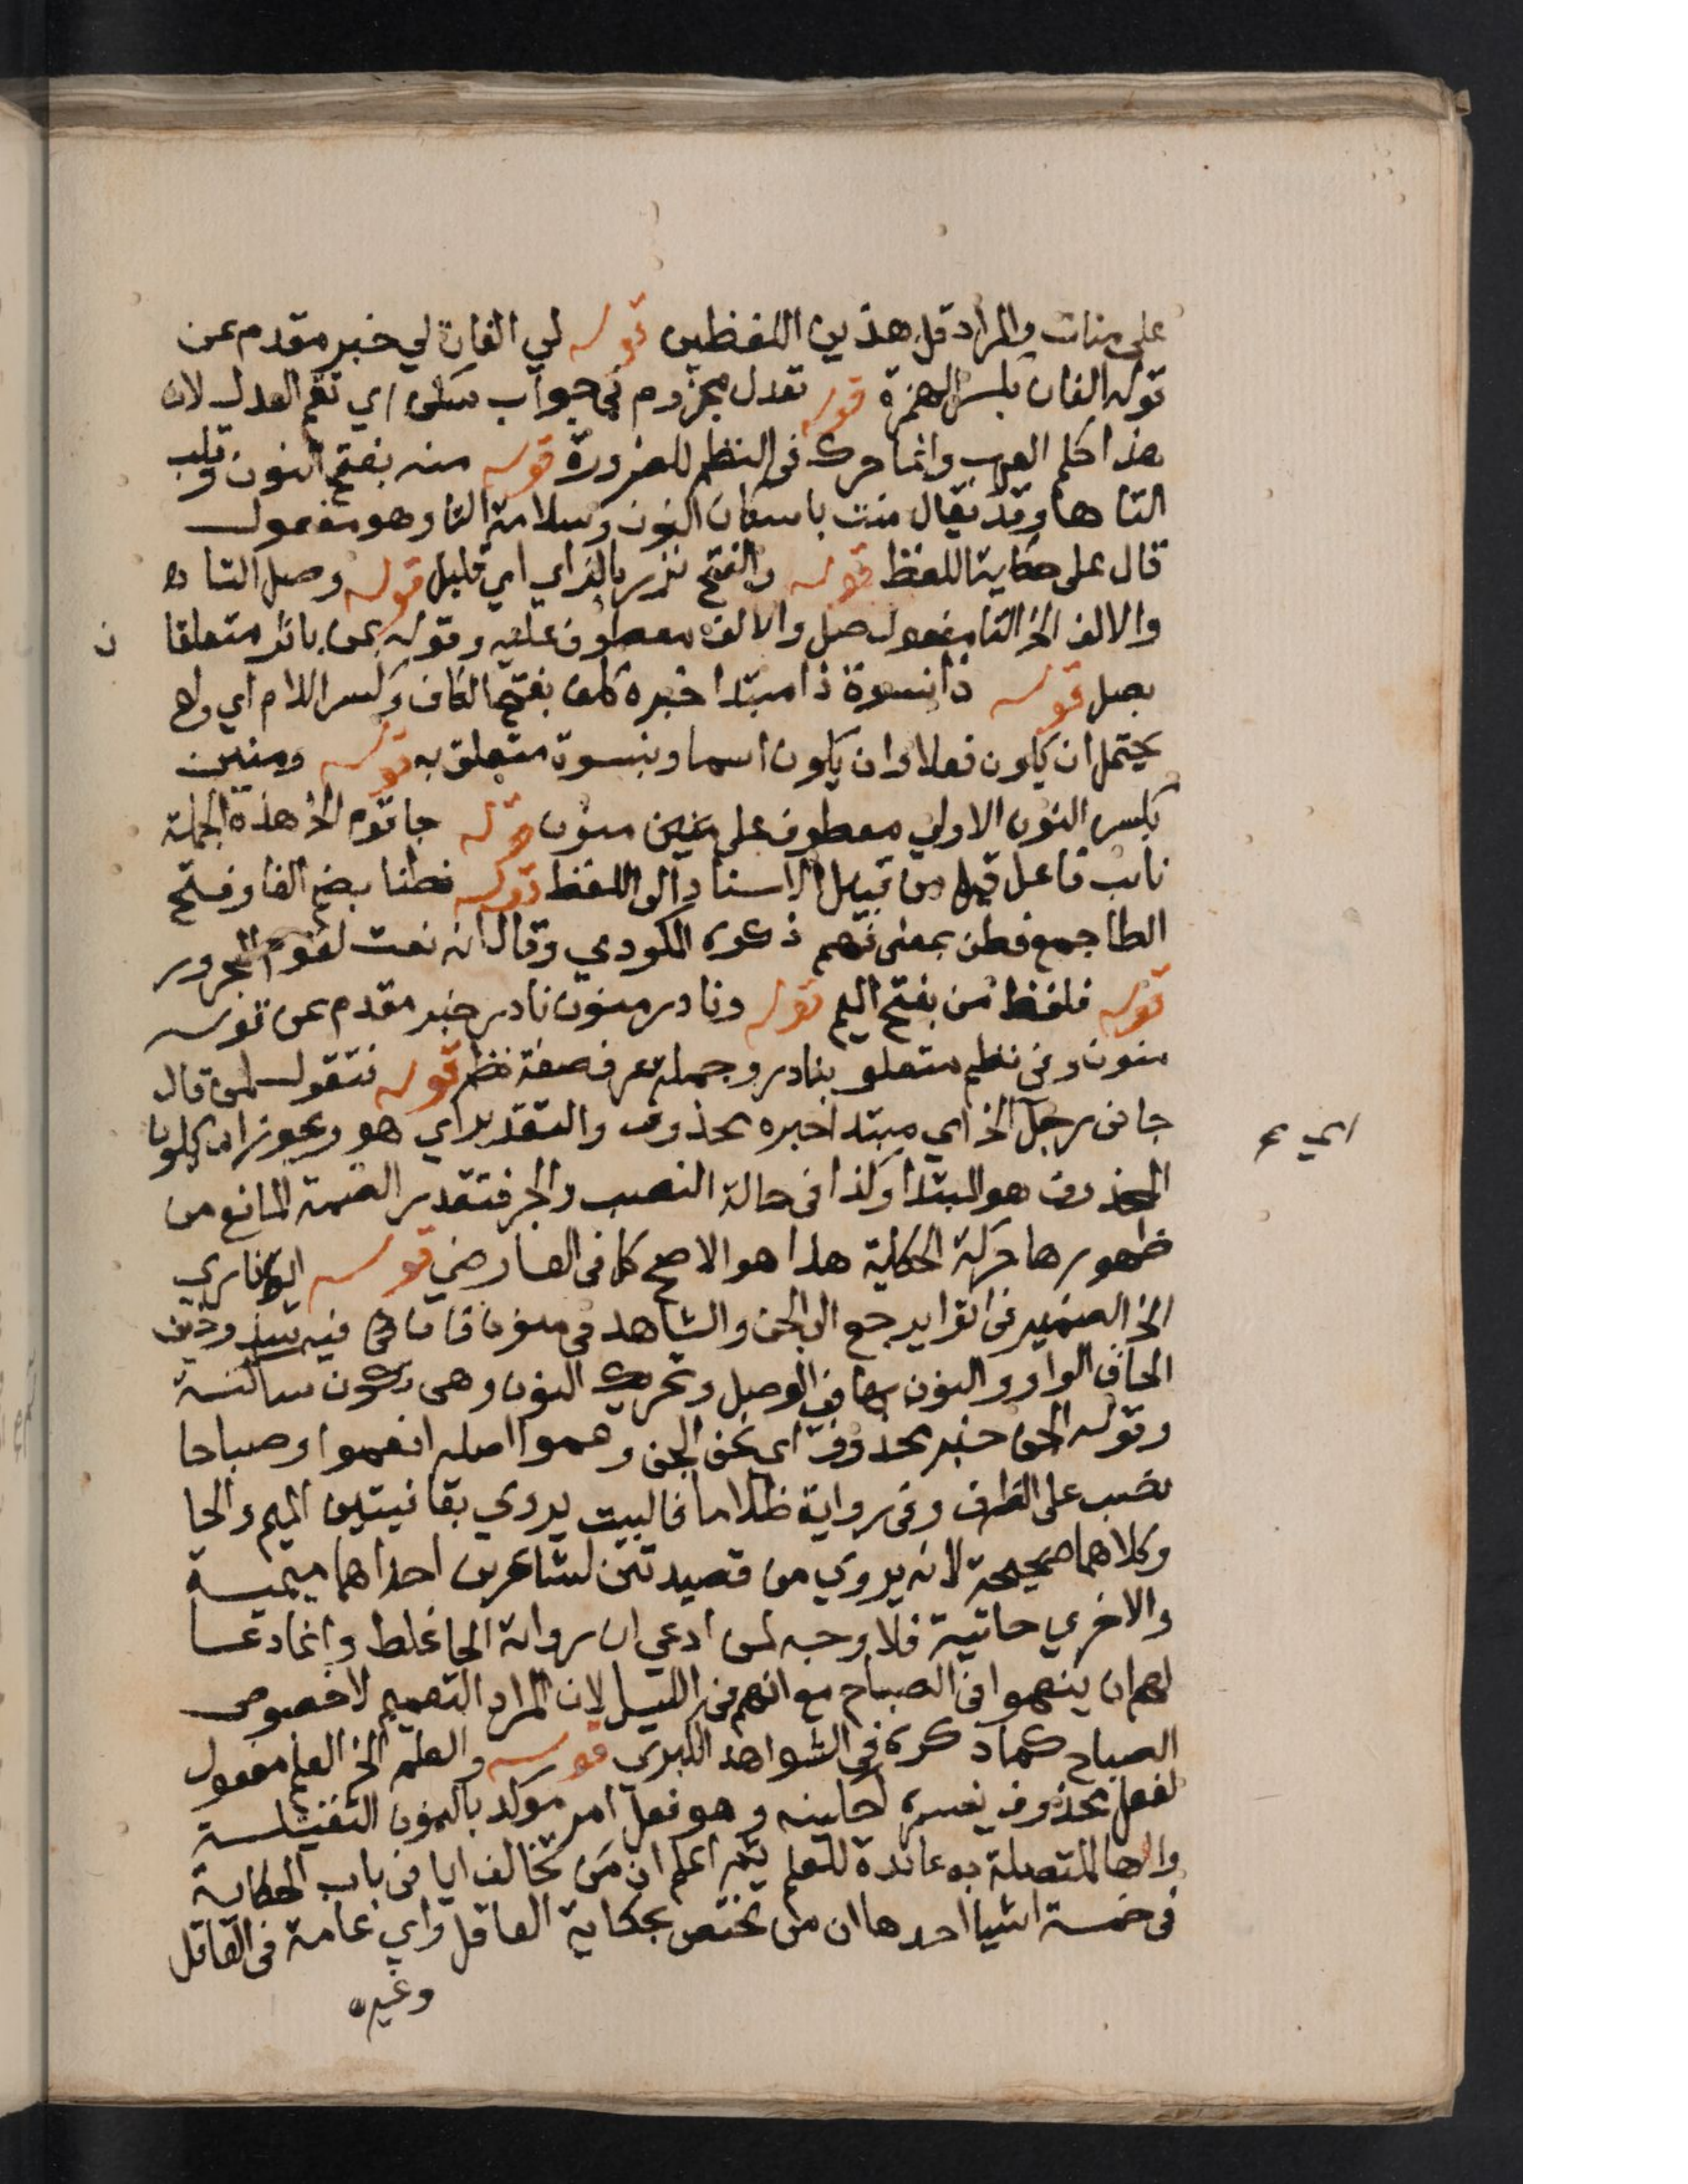 على منات والمراد قل هذين اللفظين قوله لي الفان لي خبر مقدم عن
قوله الفان بكسر الهمزة قوله تعدل مجزوم في جواب سكن اي تقم العدل لان
هذا كلم العرب وانما حرك في النظم للضرورة قوله منه بفتح النون وقلب
التا ها وقد يقال منت باسكان النون وسلامة التا وهو مفعول
قال على حكاية اللفظ قوله والفتح نزر بالزاي اي قليل قوله وصل التا
والالف الخ التا مفعول صل والالف معطوف عليه وقوله بمن باثر متعلقا
ن
بصل قوله ذا بنسوة ذا مبتدا خبره كلف بفتح الكاف وكسر اللام اي وله
يحتمل ان يكون فعلا وان يكون اسما وبنسوة متعلق به قوله ومنين
بكسر النون الاولي معطوف على منون قوله جا قوم الخ هذه الجملة
نايب فاعل قيل من قبيل الاسناد الى اللفظ قوله فطنا بضم الفا وفتح
الطا جمع فطن بمعنى فهم ذكره المكودي وقال انه نعت لقوم المجرور
قوله فلفظ من بفتح الميم قوله ونادر منون نادر خبر مقدم عن قوله
منون وفي نظم متعلق بنادر وجملة عرف صفة نظم قوله فتقول لمن قال
جاني رجل الخ اي مبتدا خبره محذوف والتقدير اي هو ويجوز ان يكون
اي
المحذوف هو المبتدا وكذا في حالة النصب والجر فتقدر الضمة المانع من
ظهورها حركة الحكاية هذا هو الاصح كما في الفارضي قوله اتوا ناري
الخ الضمير في اتوا يرجع الى الجن والشاهد في منون فان فيه شذوذين
الحاق الواو والنون بها في الوصل وتحريك النون وهي تكون ساكنة
وقوله الجن خبر محذوف اي نحن الجن وعموا اصله انعموا وصباحا
نصب على الظرف وفي رواية ظلاما فالبيت يروي بقافيتين الميم والحا
وكلاهما صحيحة لانه يروي من قصيدتين لشاعرين احداهما ميمية
والاخري حائية فلا وجه لمن ادعي ان رواية الحا غلط وانما دعا
لهم ان ينعموا في الصباح مع انهم في الليل لان المراد التعميم لا خصوص
الصباح كما ذكره في الشواهد الكبري قوله والعلم الخ العلم مفعول
لفعل محذوف يفسره احكينه وهو فعل امر موكد بالنون الثقيلة
والها المتصلة به عائدة للعلم ثم اعلم ان من تخالف ايا في باب الحكاية
في خمسة اشيا احدها ان من تختص بحكاية العاقل واي عامة في العاقل
وغيره